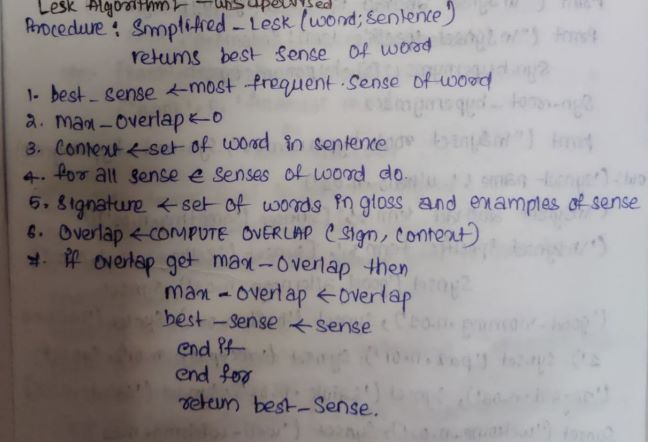 Lesk Algorithm - unsupervised
Procedure : Simplified - Lesk (word; sentence)
returns best sense of word
1. best_sense ← most frequent sense of word
2. max_overlap ← 0
3. Context ← set of word in sentence
4. for all sense ∈ senses of word do
5. Signature ← set of words in gloss and examples of sense
6. Overlap ← COMPUTE OVERLAP (sign, context)
7. if overlap get max-overlap then
max-overlap ← overlap
best-sense ← sense
end if
end for
return best_sense.